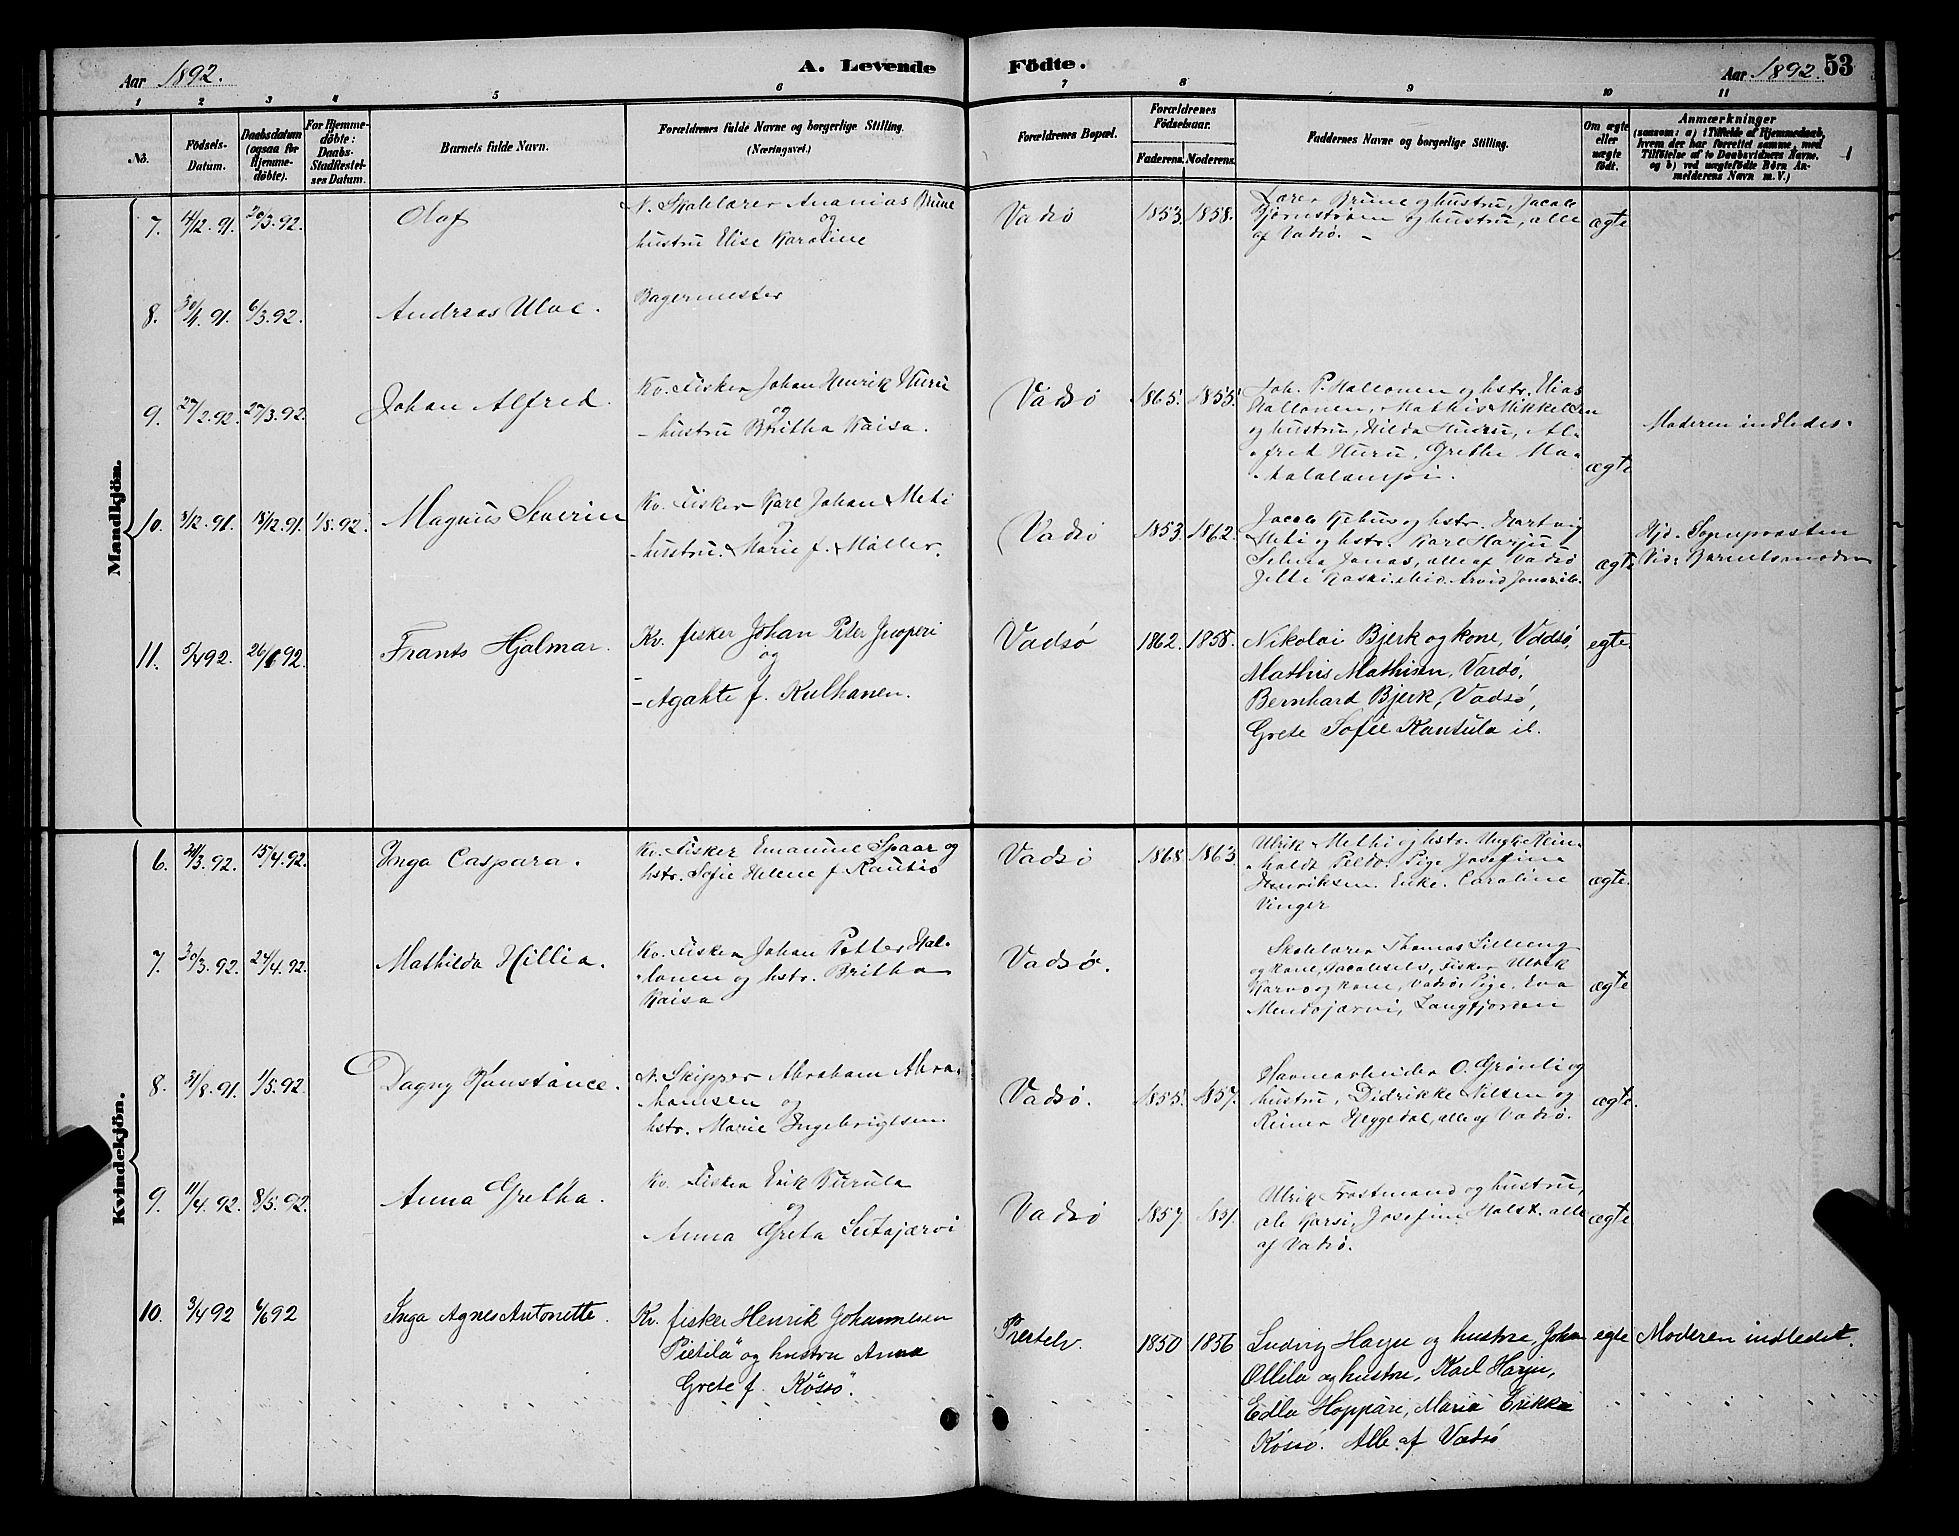 Aar 1892. A. Levende Födte. Aar 1892. 53
1 2 3 4 5 6 7 8 9 10 11
No.
Födsels-
Datum.
Daabsdatum
(ogsaa for
Hjemme-
döbte).
For Hjemme-
döbte:
Daabs-
Stadfestel-
ses Datum.
Barnets fulde Navn.
Forældrenes fulde Navne og borgerlige Stilling.
(Næringsvei.)
Forældrenes Bopæl.
Forældrenes
Födselsaar.
Faderens. Moderens.
Faddernes Navne og borgerlige Stilling.
Om ægte
eller
uægte
født.
Anmærkninger
(saasom: a) i Tilfælde af Hjemmedaab,
hvem der har forrettet samme, med
Tilföielse af to Daabsvidners Navne,
og b) ved uægtefödte Börn An-
melderens Navn m. V.)
Mandkjön.
7. 4/12.91. 20/3.92.
Olaf
N. Skolelærer Ananias Brune
og
hustru Elise Karoline
Vadsø 1853. 1858.
Lærer Brune og hustru, Jacob
Bjørnstrøm og hustru, alle
af Vadsø. -
ægte
8. 30/4.91. 6/3.92.
Andreas Uloe.
Bagermester
9. 27/2.92. 27/3.92.
Johan Alfred.
Kv. Fisker Johan Henrik Huru
og
- hustru Britha Kaisa.
Vadsø 1865. 1855.
Joh. P. Hallonen og hstr. Elias
Hallonen, Mathis Mikkelsen
og hustru, Hilda Huru, Al-
fred Huru, Grethe Ma-

ægte
Moderen indledes.
10. 3/12.91. 18/12.91. 1/5.92.
Magnus Severin
Kv. Fisker Karl Johan Meti
og
hustru. Marie f. Møller.
Vadsø 1853. 1862.
Jacob og hstr. Hartvig
Meti og hstr. Karl Harju
Selma Jonas, alle af Vadsø
ægte
Hjd. Sognepræsten
Vid: Barnets moder
11. 5/4 92. 26/ 92.
Frants Hjalmar.
Kv. fisker Johan Peter Jesoperi
og
- Agahte f. Kulhanen.
Vadsø 1862. 1858.
Nikolai Bjerk og kone, Vadsø,
Mathis Mathisen, Vardø,
Bernhard Bjerk, Vadsø,
Grete Sofie Kantula il.
egte.
Kvindekjön.
6. 24/3.92. 15/4.92.
Inga Caspara.
Kv. Fisker Emanuel Spaar og
hstr. Sofie Helene f. Rautio
Vadsø 1868. 1863.
Ulrik Methi og hstr. Ungk. Rein-
holdt Peldo. Pige Josefine
Henriksen. Enke. Caroline
Vinger
ægte.
7. 30/3.92. 24/4.92.
Mathilda Hillia.
Kv. Fisker Johan Petter Hal-
lonen og hstr. Britha
Kaisa
Vadsø.
Skolelærer Thomas
og kone, Jacobselv, Fisker Ulrik
Karvo og kone, Vadsø. Pige. Eva
Mendojærvi, Langfjorden
ægte
8. 31/8.91. 1/5.92.
Dagny Konstance.
N. Skipper Abraham Abra-
hamsen og
hstr. Marie Ingebrigtsen.
Vadsø. 1855. 1857.
Havnearbeider O. Grønli og
hustru, Didrikke Nilsen og
Reimer Heggedal, alle af Vadsø.
ægte.
9. 11/4.92. 8/5.92.
Anna Gretha.
Kv. Fisker Erik Vurula
og
Anna Greta Seitajærvi
Vadsø 1857. 1851.
Ulrik Frostmand og hustru,
Karsi, Josefine Holst. alle
af Vadsø.
ægte
10. 3/4 92 6/6 92
Inga Agnes Antonette.
Kv. fisker Henrik Johannesen
Pietilä og hustru Anna
Grete f. Kössö.
Præstelv. 1850 1856
Ludvig Harju og hustru, Johan
Ollila og hustru, Karl Harju,
Edla Hoppare, Maria Erikka
Kössö. Alle af Vadsø
egte
Moderen indledet.